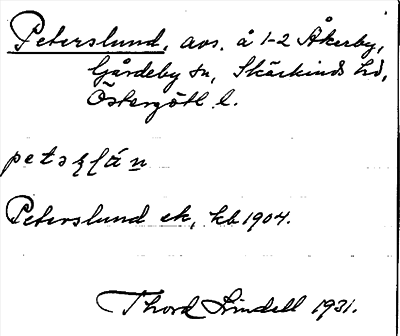 Peterslund, avs. å 1-2 Åkerby,
Gårdeby sn, Skärkinds hd,
Östergötl. l.
Peterslund ek, kb 1904.
Thord Lindell 1931.